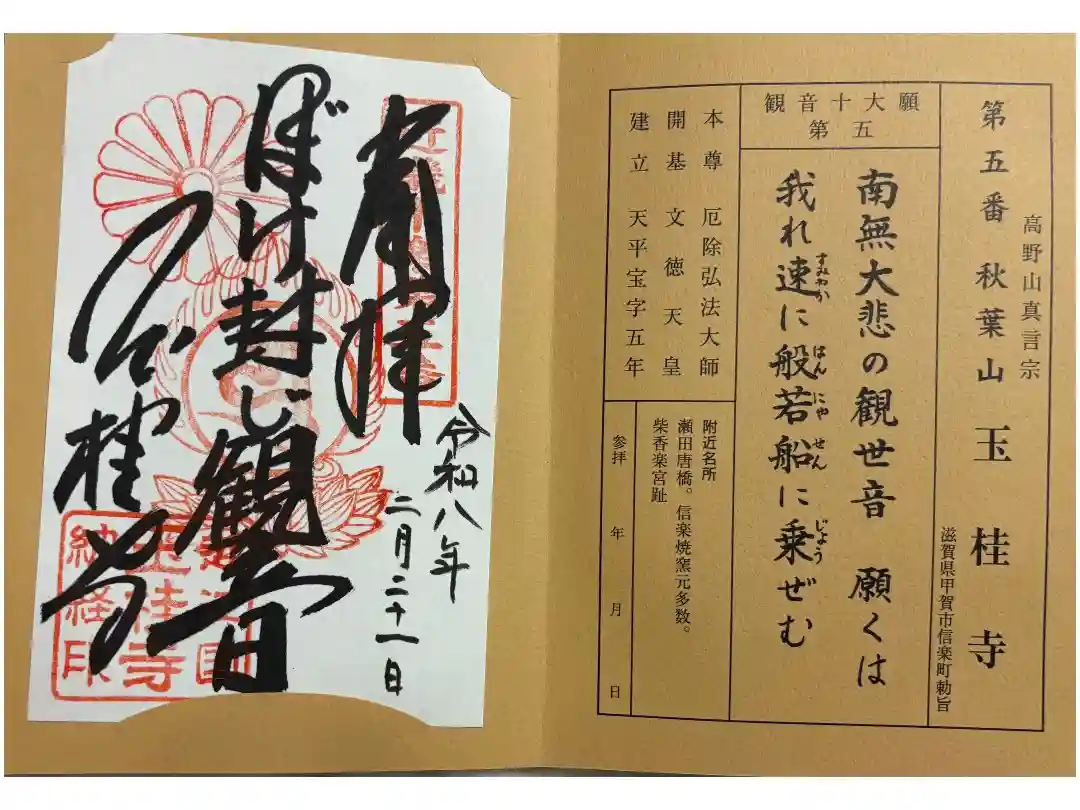 第五番 秋葉山 玉桂寺
高野山真言宗
滋賀県甲賀市信楽町勅旨
観音十大願
第五
南無大悲の観世音 願くは
我れ速に般若船に乗ぜむ
すみやか
はんにやせん
じよう
本尊 厄除弘法大師
開基 文徳天皇
建立 天平宝字五年
附近名所
瀬田唐橋。信楽焼窯元多数。
紫香楽宮趾
参拝 年 月 日
奉拝
令和八年
二月二十一日
ぼけ封じ観音
玉桂寺
納経印